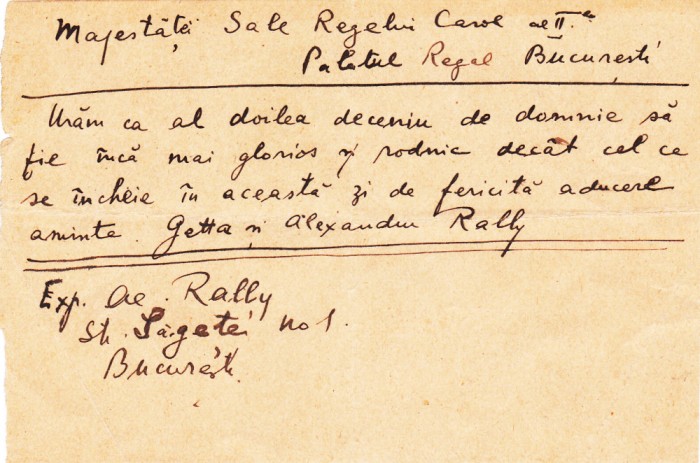 Majestăței Sale Regelui Carol al II.lea
Palatul Regal București
Urăm ca al doilea deceniu de domnie să
fie încă mai glorios și rodnic decât cel ce
se încheie în această zi de fericită aducere
aminte. Getta și Alexandru Rally
Exp. Al. Rally
Str. Săgetei No 1.
București.